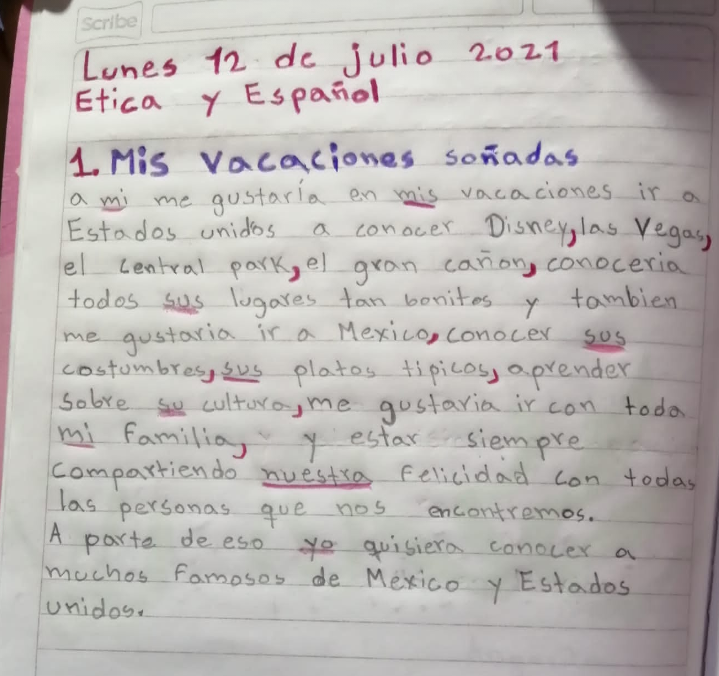 Scribe
Lunes 12 de julio 2021
Etica y Español
1. Mis vacaciones soñadas
a mi me gustaría en mis vacaciones ir a
Estados unidos a conocer Disney, las Vegas,
el central park, el gran cañon, conoceria
todos sus lugares tan bonitos y tambien
me gustaria ir a Mexico, conocer sus
costumbres, sus platos tipicos, aprender
sobre su cultura, me gustaria ir con toda
mi familia, y estar siempre
compartiendo nuestra felicidad con todas
las personas que nos encontremos.
A parte de eso yo quisiera conocer a
muchos famosos de Mexico y Estados
unidos.